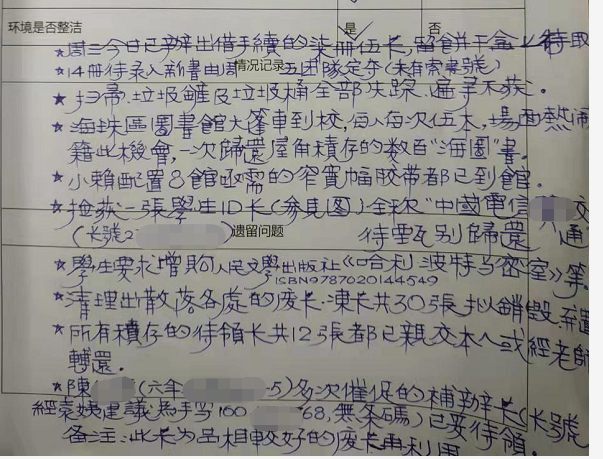 环境是否整洁 是 否
★周三今日已辦出借手續的柒冊伍长,留餅干盒以待取
★14冊待录入新書由周 五团隊定夺(未有索書號)
情况记录
★扫帚.垃圾鏟及垃圾桶全部失踪.遍寻不获.
★海珠區圖書館大篷車到校,每人每次伍本,場面熱闹
籍此機會,一次歸還屋角積存的数百"海圖"書.
★小賴配置8館亟需的窄寬幅胶带都已到館.
★捡获一張學生ID长(参見图)全 "中國電信
(长號2 待甄别歸還 通
遗留问题
★學生要求增購人民文學出版社《哈利波特与密室》等.
ISBN9787020144549
★清理出散落各處的废长.凍长共30張拟銷毁.
★所有積存的待領长共12張都已親交本人或經老師
轉還.
★陳 (六年 -5)多次催促的補辦长(长號
經袁姨建議為手写100 68,無条碼)已妥待領.
备注:此长为品相較好的废长再利用